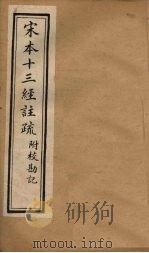 宋本十三經註疏附校勘記
mtoou.info